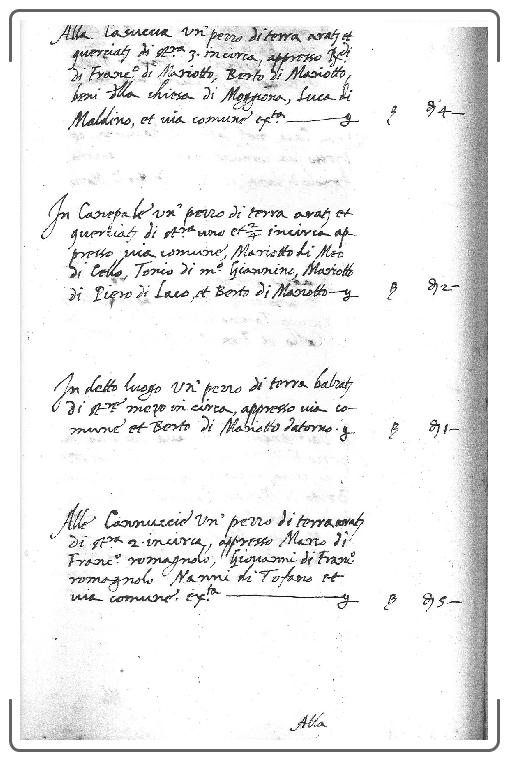 Alla Casuccia Un° pezzo di terra arat: et
querciat: di st.ra 3. incirca, appresso
di Franc.° di Mariotto, Berto di Mariotto,
beni della chiesa di Moggiona, Luca di
Maldino, et uia comune ex.ta
4 —
In Canepale un° pezzo di terra arat: et
querciat: di st.ra uno et 2/4 incirca ap
presso, uia comune, Mariotto di Meo
di Cello, Tonio di m.° Giannino, Mariotto
di Piero di Laco, et Berto di Mariotto —
2 —
In detto luogo Un° pezzo di terra balzat:
di st.re mezo in circa, appresso uia co-
mune et Berto di Mariotto datorno
1 —
Alle Cannuccie Un° pezzo di terra arat:
di st.ra 2. incirca, appresso Marco di
Franc.° romagnolo, Giouanni di Franc.°
romagnolo Nanni di Tofano et
uia comune ex.ta
5 —
Alla